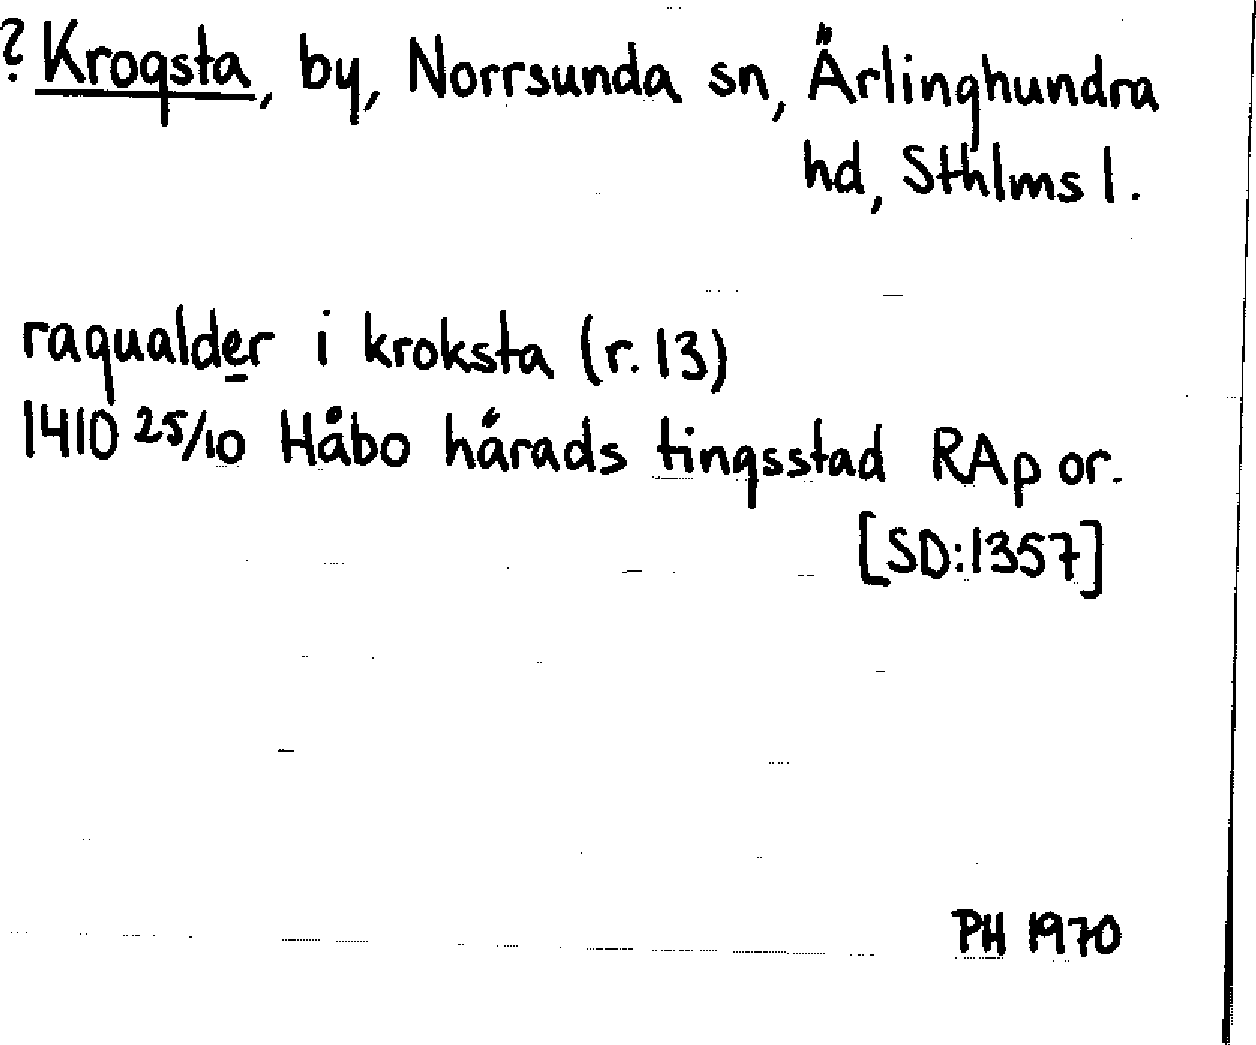 ? Krogsta, by, Norrsunda sn, Ärlinghundra
hd, Sthlms l.
ragualder i kroksta (r. 13)
1410 25/10 Håbo härads tingsstad RAp or.
[SD:1357]
PH 1970